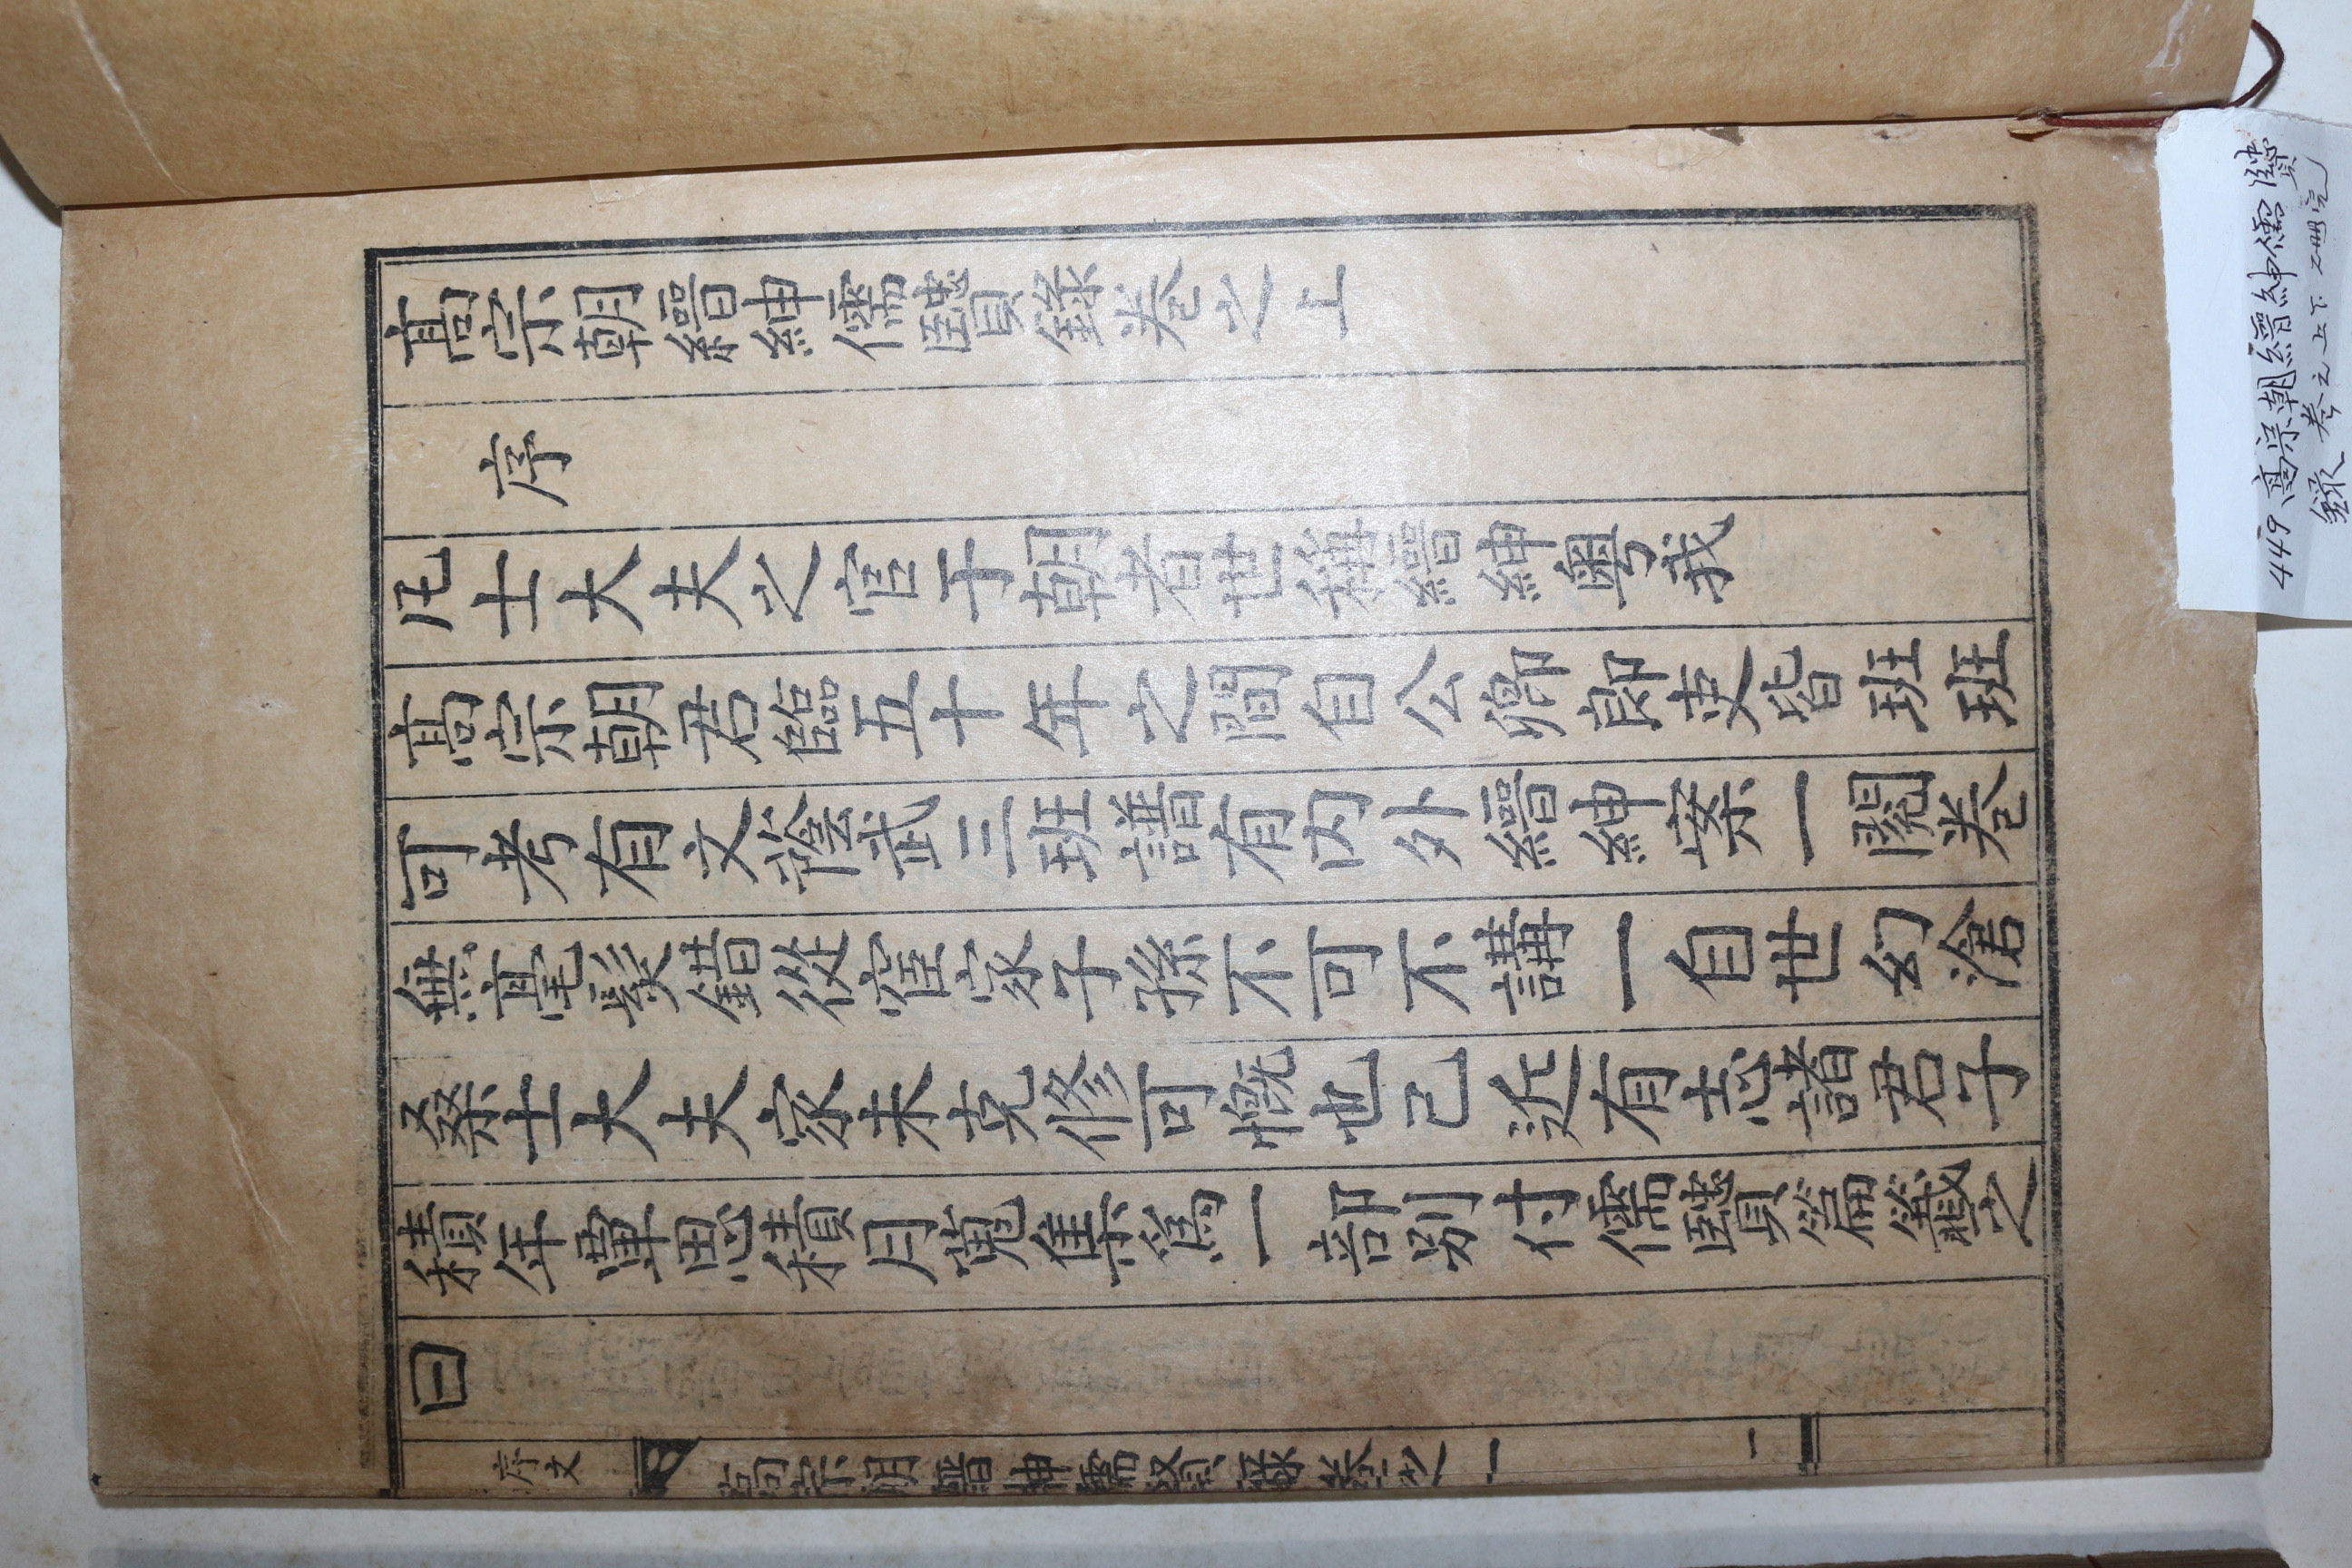 高宗朝縉紳儒賢錄卷之上
序
凡士大夫之官于朝者世稱縉紳粤我
高宗朝君臨五十年之間自公卿郎吏皆班班
可考有文蔭武三班譜有内外縉紳案一閱卷
無毫髮錯從宦家子孫不可不講一自世幻滄
桑士大夫家未克修可慨也己近有志諸君子
積年覃思積月蒐集爲一部别付儒賢篇籤之
曰
序文
高宗朝縉紳儒賢錄卷之一
一
449 高宗朝縉紳儒賢
錄 卷之上下 2冊完